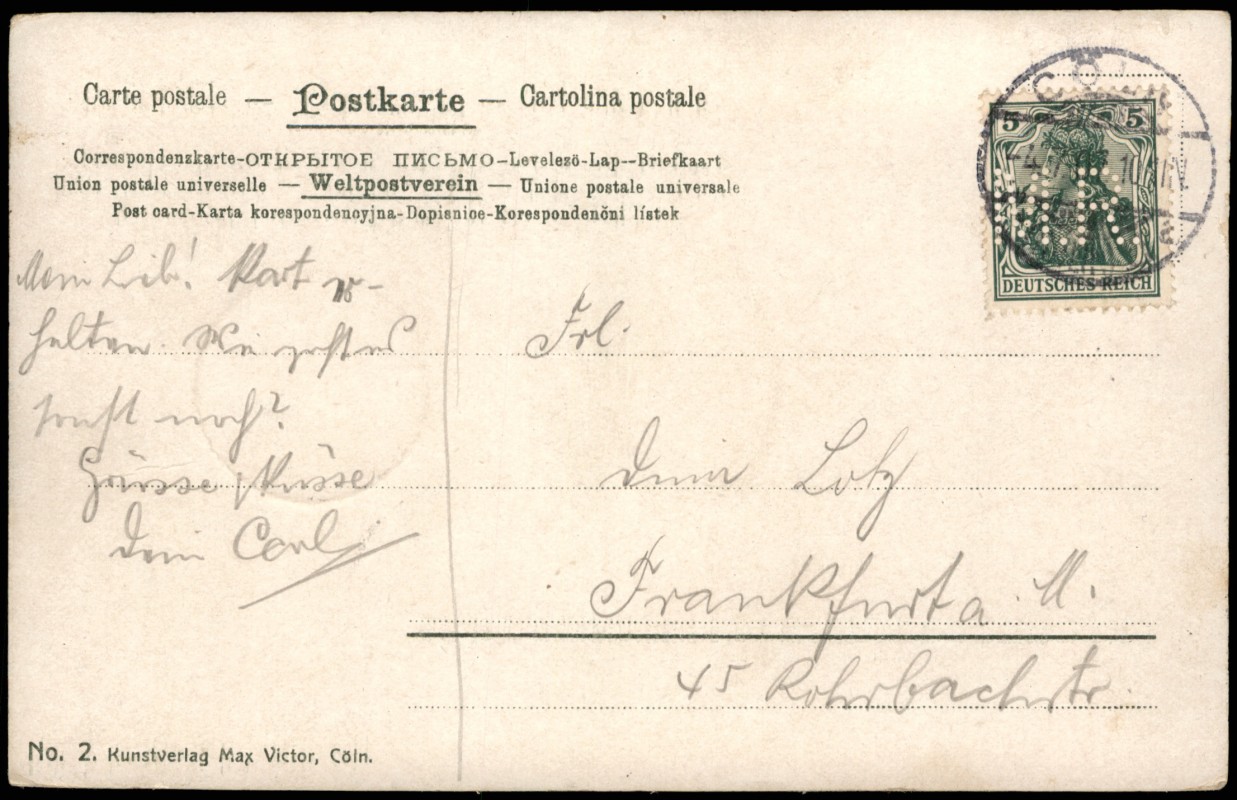 Carte postale — Postkarte — Cartolina postale
Correspondenzkarte-ОТКРЫТОЕ ПИСЬМО-Levelezö-Lap--Briefkaart
Union postale universelle — Weltpostverein — Unione postale universale
Post card-Karta korespondencyjna-Dopisnice-Korespondenčni lístek
CÖLN
5 5
DEUTSCHES REICH
Mein Lieb! Kart er-
halten. Wie geht es
sonst noch?
Grüsse Küsse
Dein Carl
Frl.
Lotz
Frankfurt a. M.
45 Rohrbachstr.
No. 2. Kunstverlag Max Victor, Cöln.